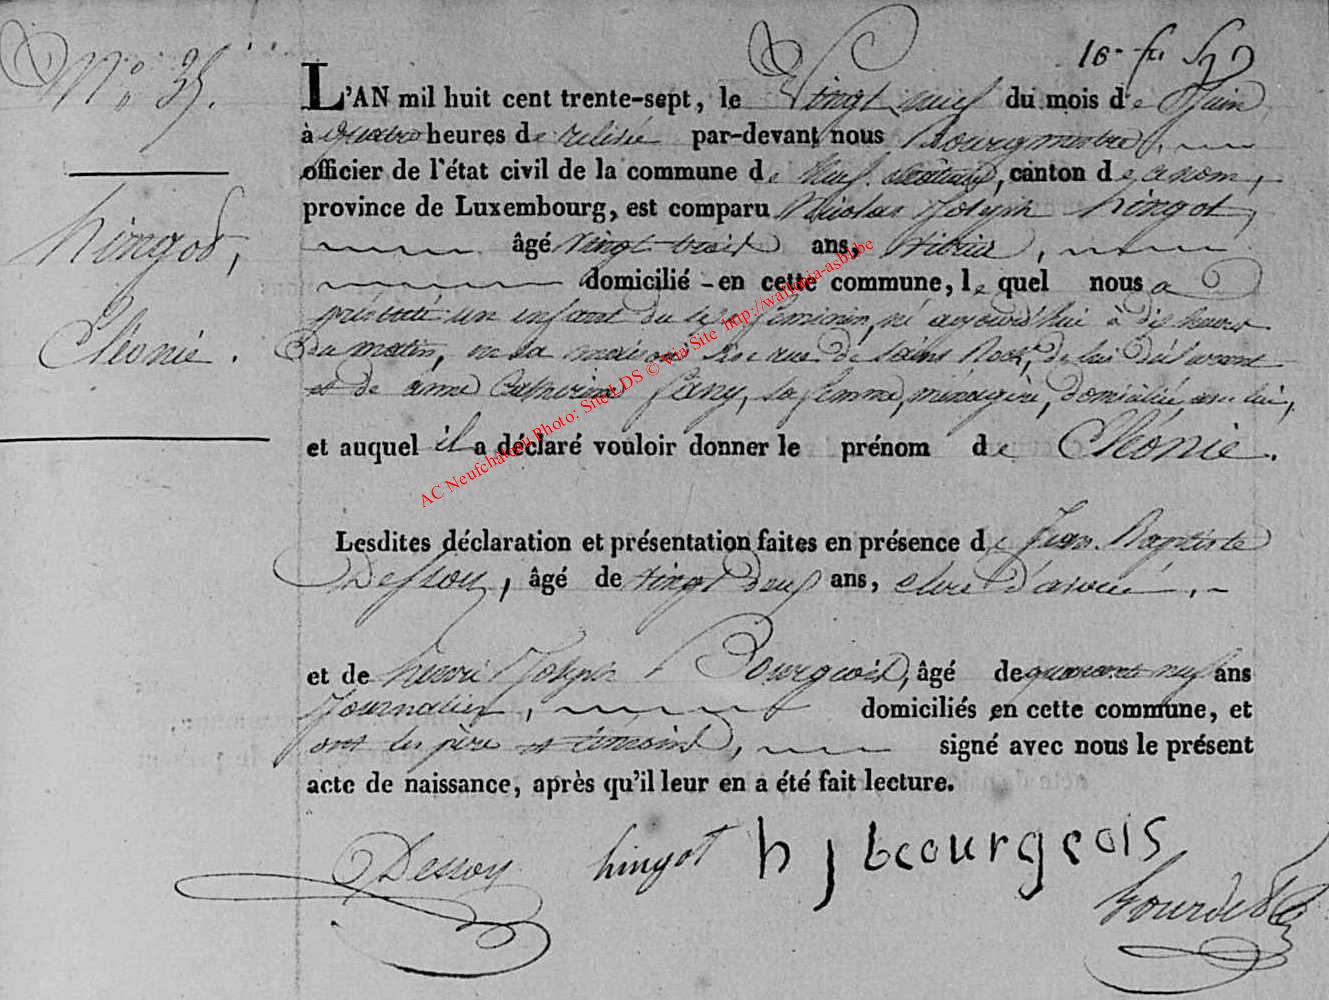 N° 35.
hingot,
Cléonie.
L'AN mil huit cent trente-sept, le Vingt neuf du mois de Juin
à quatre heures de relevée par-devant nous Bourgmestre,
officier de l'état civil de la commune de Neufchâteau, canton de ce nom,
province de Luxembourg, est comparu Nicolas Joseph hingot,
âgé Vingt trois ans,
domicilié en cette commune, lequel nous a
présenté un enfant du sexe féminin, né aujourd'hui à dix heures
du matin, en sa maison rue de Saint Roch, de lui déclarant
et de anne Catherine sa femme, ménagère, domiciliée avec lui,
et auquel il a déclaré vouloir donner le prénom de Cléonie.
Lesdites déclaration et présentation faites en présence de Jean Baptiste
Dessoy, âgé de vingt deux ans, clerc d'avoué,
et de henri Joseph Bourgeois, âgé de quarante neuf ans
Journalier, domiciliés en cette commune, et
ont les père et témoins, signé avec nous le présent
acte de naissance, après qu'il leur en a été fait lecture.
Dessoy hingot h j bourgeois
AC Neufchateau Photo: Site LDS © Via Site http://wallonia-asbl.be